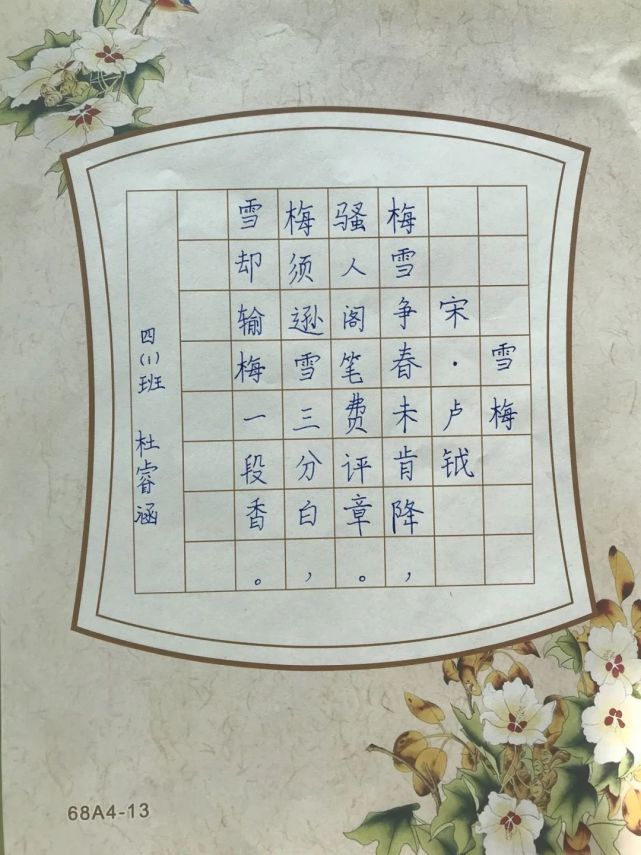 雪梅
宋·卢钺
梅雪争春未肯降，
骚人阁笔费评章。
梅须逊雪三分白，
雪却输梅一段香。
四(1)班 杜睿涵
68A4-13